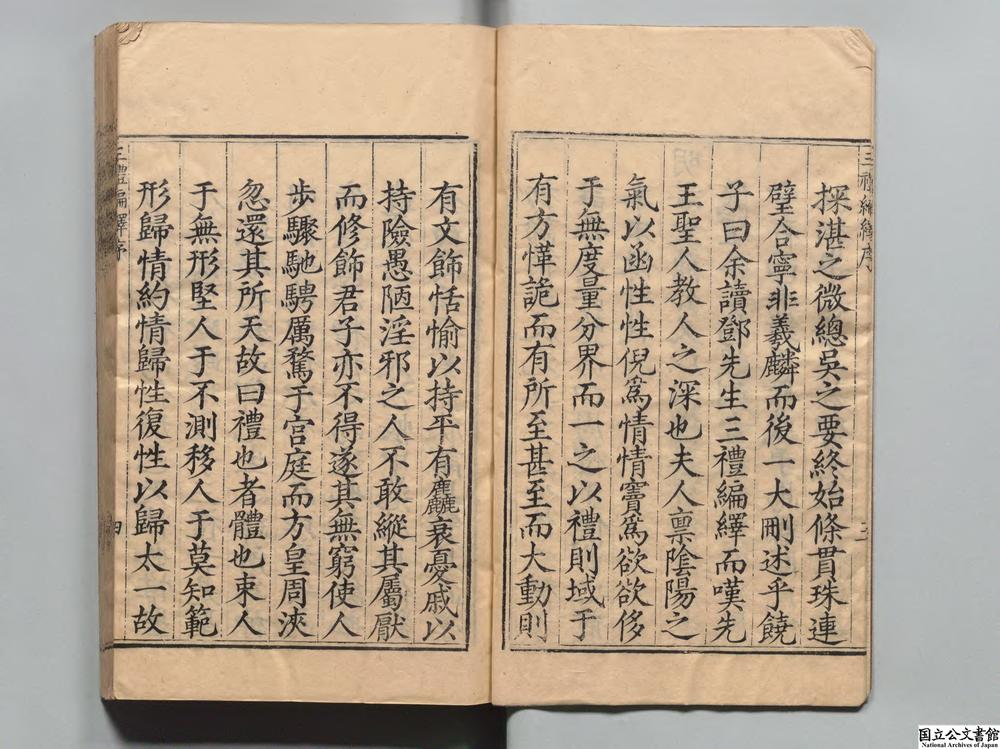 三禮編繹序
探湛之微總吳之要終始條貫珠連
璧合寧非羲麟而後一大刪述乎饒
子曰余讀鄧先生三禮編繹而嘆先
王聖人教人之深也夫人禀陰陽之
氣以函性性倪爲情情竇爲欲欲侈
于無度量分界而一之以禮則域于
有方㦎詭而有所至甚至而大動則
三
有文飾恬愉以持平有麤衰憂戚以
持險愚陋淫邪之人不敢縱其屬厭
而修飾君子亦不得遂其無窮使人
步驟馳騁厲騖于宮庭而方皇周浹
忽還其所天故曰禮也者體也束人
于無形堅人于不測移人于莫知範
形歸情約情歸性復性以歸太一故
三禮編繹序
四
国立公文書館
National Archives of Japan